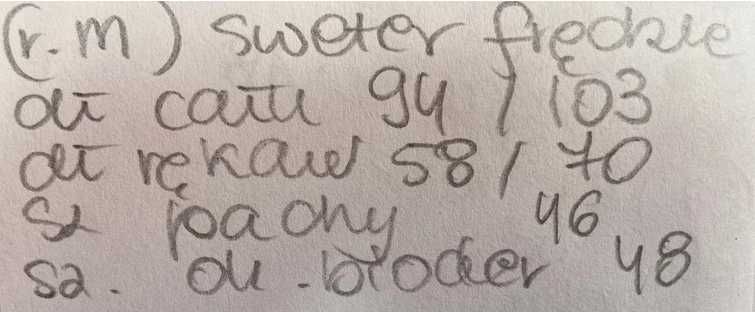 (r.m) sweter frędzle
dł całk 94 / 103
dł rękaw 58 / 70
sz pachy 46
sz. ok. bioder 48